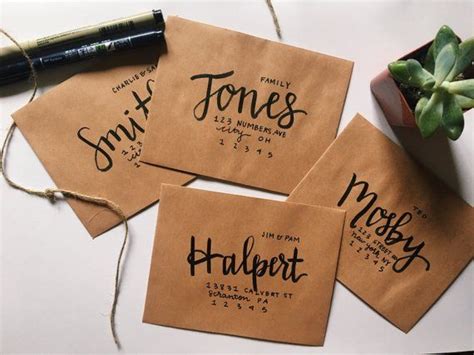 CHARLIE &
Smit
1 2 3
1 2 3 4 5
FAMILY
Jones
123 NUMBERS AVE
City OH
1 2 3 4 5
JIM & PAM
Halpert
13831 CALVERT ST
Scranton PA
1 2 3 4 5
TED
Mosby
123 STREET
new york, NY
1 2 3 4 5